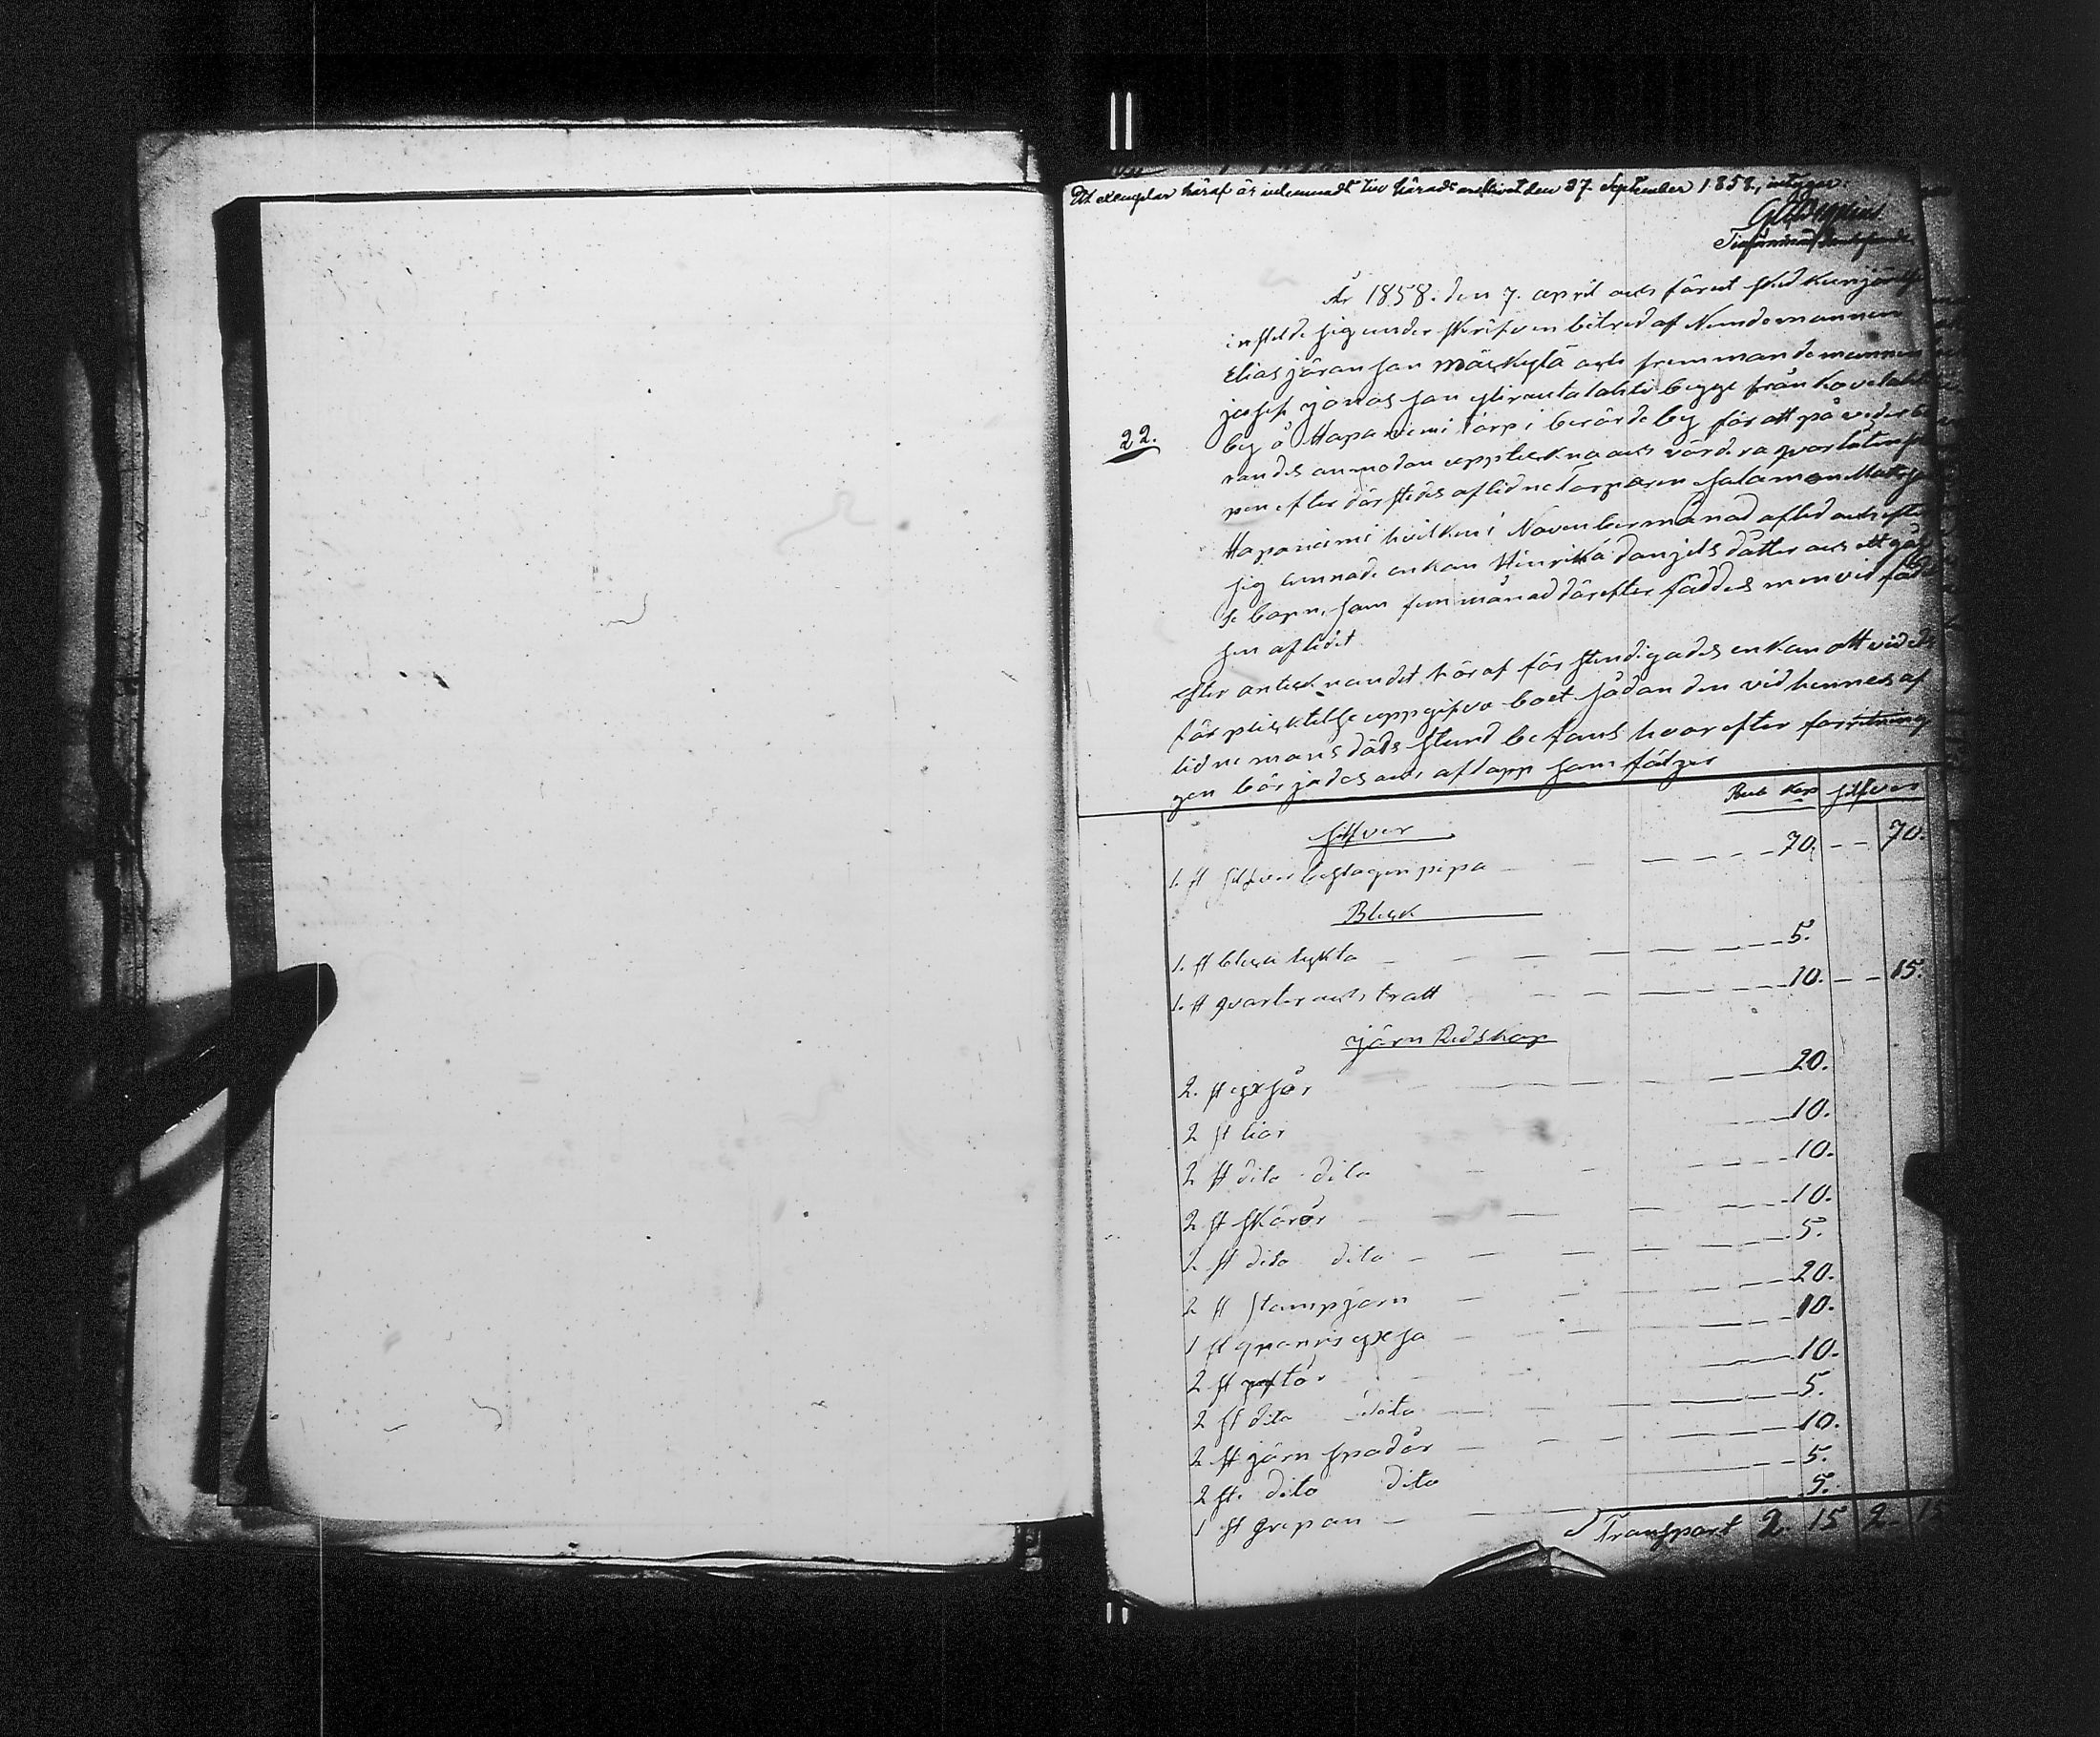 Ett exemplar häraf är inlemnadt till härads archivet den 27. September 1858, intygar:
År 1858. den 7. april och förut sked kungörelse
instelde sig under skrifven biträd af Nemdemannen
Elias jöransson Mäckylä och fremmande mannen
josef jonasson begge från
by å Hapaniemi torp i berörde by för att på vederbö
randes anmodan upptekna och värdera qvarlåtenska
pen efter därstedes aflidne Torparen Salamon Mattsson
Hapaniemi hvilken i November månad afled och efter
sig lemnade enkan Hinrika Danjels dotter och ett
se barn, som fem månad därefter föddes men vid födel
sen aflidit
22.
efter anteknandet häraf för stendigades enkan att vid eds
för plicktelse uppgifva boet sådan den vid hennes af
lidne mans döds stund befans hvarefter förretning
gen börjades och aflopp som följer
Rub Kop silfver
silfver
1. st silfver beslagen pipa 70. 70.
Bleck
1. st bleck lykta 5.
1. st qvarter och tratt 10. 15.
järn Redskap
2. st yxsor 20.
2 st liar 10.
2 st dito dito 10.
2 st skäror 10.
2 st dito dito 5.
2 st stampjärn 20.
1 st yxsa 10.
2 st 10.
2 st dito dito 5.
2 st järn spador 10.
2 st. dito dito 5.
1 st grepan 5.
Transport 2. 15 2. 15